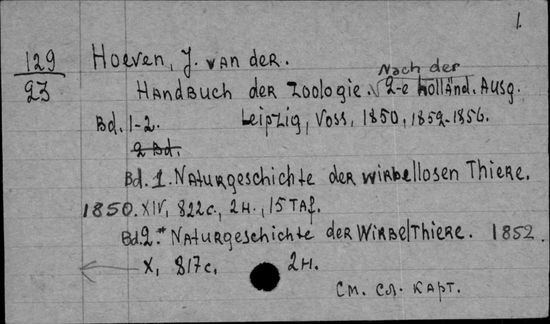 1.
129
23
Hoeven, J. van der.
Handbuch der Zoologie. Nach der 2-e holländ. Ausg.
Bd. 1-2. Leipzig, Voss, 1850, 1852-1856.
2 Bd.
Bd. 1. Naturgeschichte der wirbellosen Thiere.
1850. XIV, 822 c., 2 H., 15 Taf.
Bd. 2.* Naturgeschichte der Wirbelthiere. 1852.
X, 817 c. 2 H.
См. сл. карт.